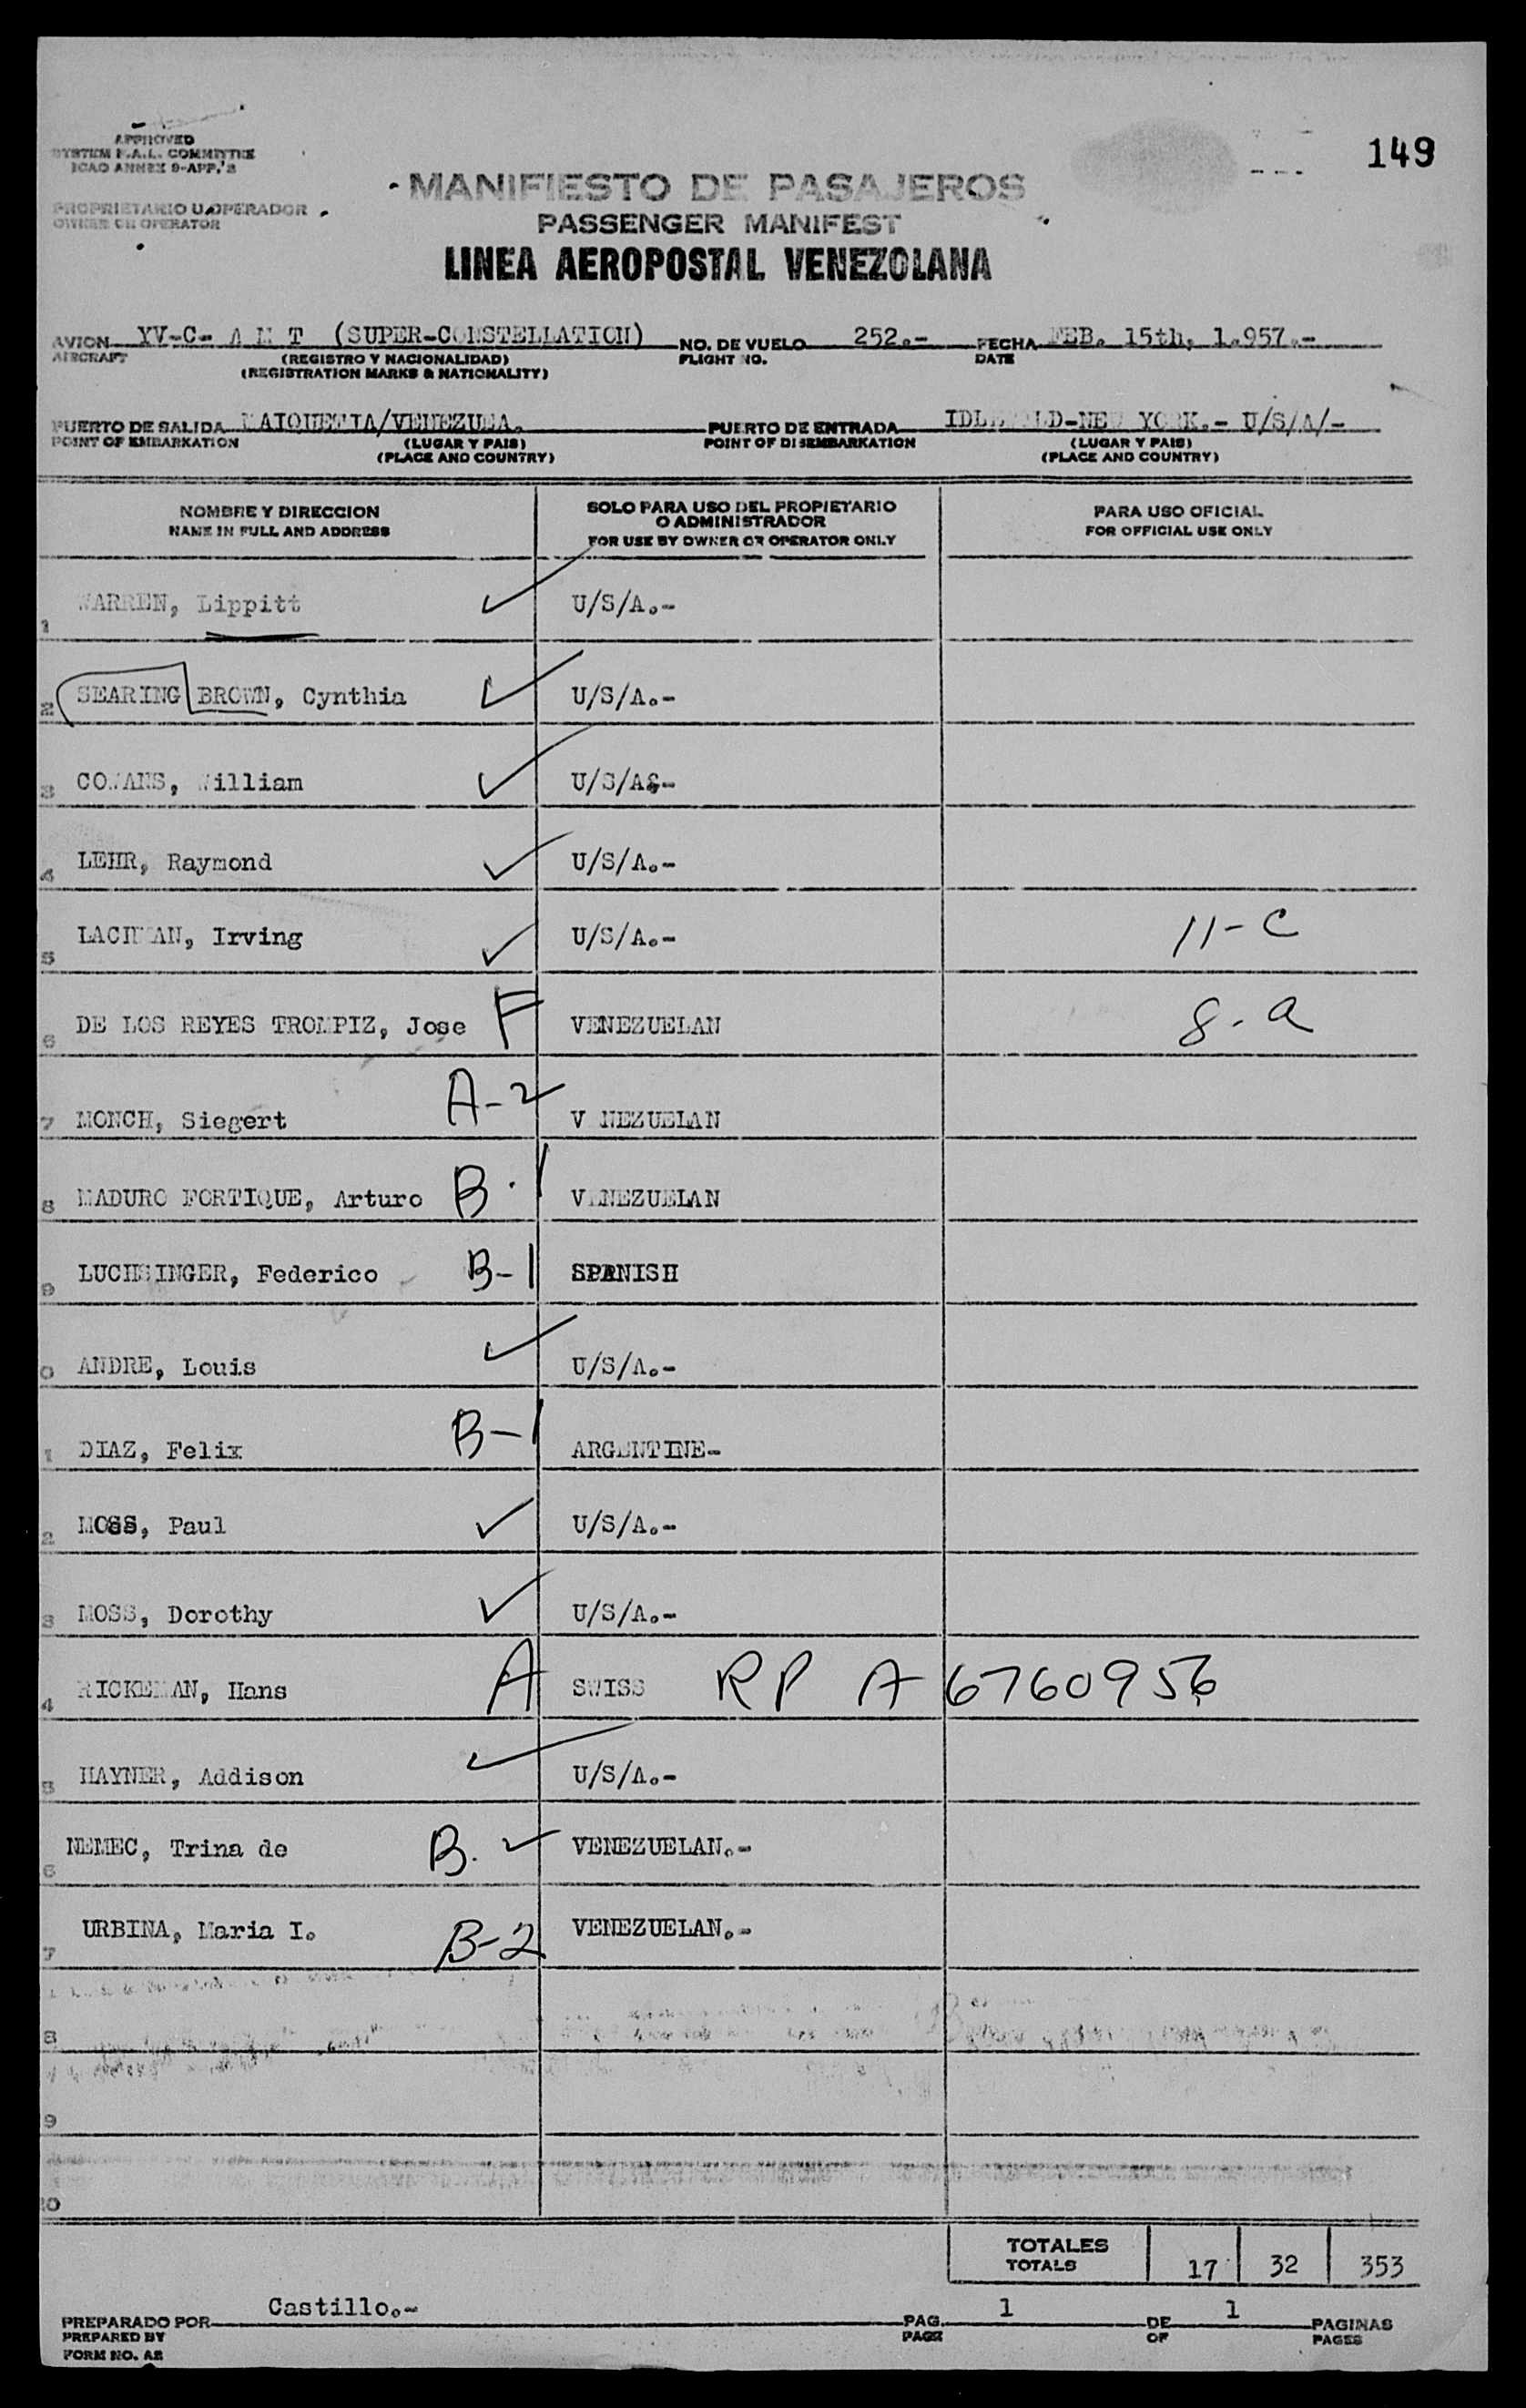 149
APPROVED
SYSTEM F.A.L. COMMITTEE
ICAO ANNEX 9-APP.'2
MANIFIESTO DE PASAJEROS
PROPRIETARIO U OPERADOR
OWNER OR OPERATOR
PASSENGER MANIFEST
LINEA AEROPOSTAL VENEZOLANA
AVION YV-C- A M T (SUPER-CONSTELLATION) NO. DE VUELO 252.- FECHA FEB. 15th, 1.957.-
AIRCRAFT (REGISTRO Y NACIONALIDAD) FLIGHT NO. DATE
(REGISTRATION MARKS & NATIONALITY)
PUERTO DE SALIDA MAIQUETIA/VENEZUELA. PUERTO DE ENTRADA IDLEWILD-NEW YORK.- U/S/A/-
POINT OF EMBARKATION (LUGAR Y PAIS) POINT OF DISEMBARKATION (LUGAR Y PAIS)
(PLACE AND COUNTRY) (PLACE AND COUNTRY)
NOMBRE Y DIRECCION SOLO PARA USO DEL PROPIETARIO O ADMINISTRADOR PARA USO OFICIAL
NAME IN FULL AND ADDRESS FOR USE BY OWNER OR OPERATOR ONLY FOR OFFICIAL USE ONLY
1 WARREN, Lippitt ✓ U/S/A.-
2 SEARING BROWN, Cynthia ✓ U/S/A.-
3 COWANS, William ✓ U/S/A&-
4 LEHR, Raymond ✓ U/S/A.-
5 LACHMAN, Irving ✓ U/S/A.- 11-C
6 DE LOS REYES TROMPIZ, Jose F VENEZUELAN 8-a
7 MONCH, Siegert A-2 VENEZUELAN
8 MADURO FORTIQUE, Arturo B-1 VENEZUELAN
9 LUCHSINGER, Federico B-1 SPANISH
0 ANDRE, Louis ✓ U/S/A.-
1 DIAZ, Felix B-1 ARGENTINE-
2 MOSS, Paul ✓ U/S/A.-
3 MOSS, Dorothy ✓ U/S/A.-
4 RICKEMAN, Hans A SWISS RP A 6760956
5 HAYNER, Addison ✓ U/S/A.-
6 NEMEC, Trina de B-2 VENEZUELAN.-
7 URBINA, Maria I. B-2 VENEZUELAN.-
8
9
20
TOTALES 17 32 353
TOTALS
PREPARADO POR Castillo.- PAG. 1 DE 1 PAGINAS
PREPARED BY PAGE OF PAGES
FORM NO. A2